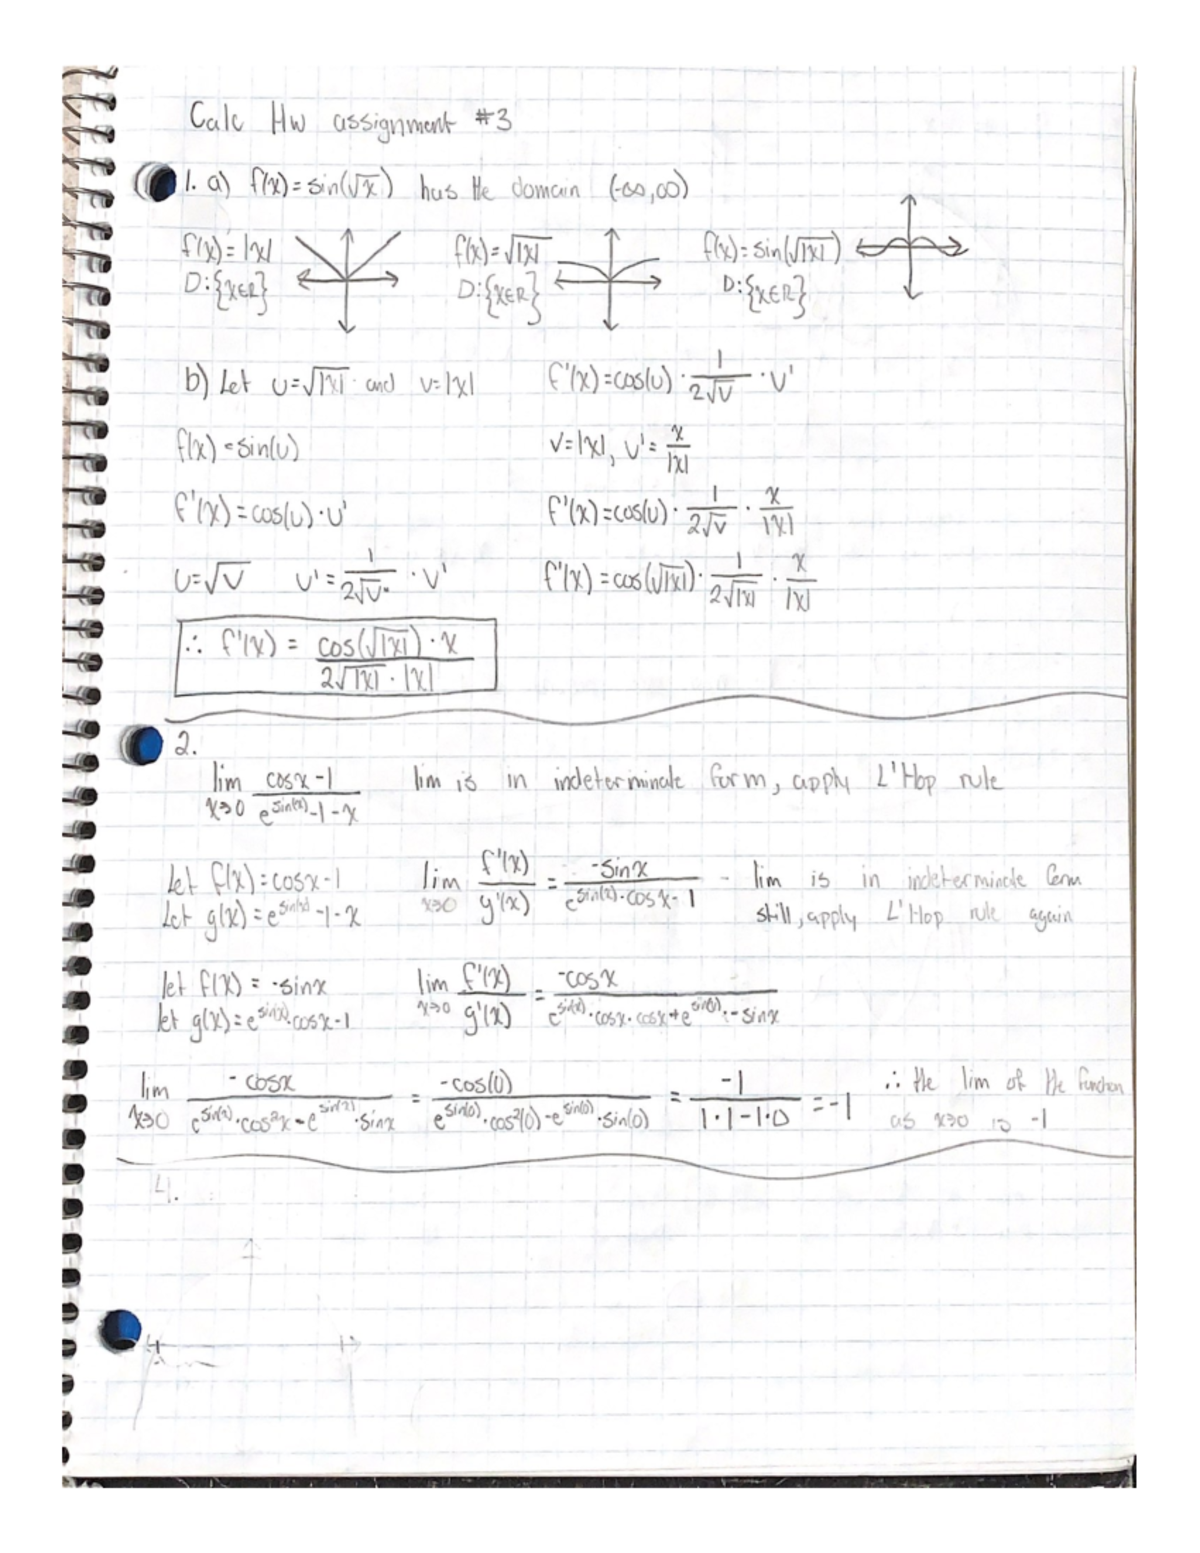 Calc Hw assignment #3
1. a) f(x) = sin(√x) has the domain (-∞,∞)
f(x) = |x|
D:{x∈R}
f(x) = √|x|
D:{x∈R}
f(x) = sin(√|x|)
D:{x∈R}
b) Let u=√|x| and v=|x|
f'(x) = cos(u) · 1/(2√v) · v'
f(x) = sin(u)
v=|x|, v' = x/|x|
f'(x) = cos(u) · u'
f'(x) = cos(u) · 1/(2√v) · x/|x|
u=√v u' = 1/(2√v) · v'
f'(x) = cos(√|x|) · 1/(2√|x|) · x/|x|
∴ f'(x) = (cos(√|x|) · x)/(2√|x| · |x|)
2.
lim x→0 (cosx - 1)/(e^sin(x) - 1 - x) lim is in indeterminate form, apply L'Hop rule
Let f(x) = cosx - 1
Let g(x) = e^sin(x) - 1 - x
lim x→0 f'(x)/g'(x) = -sinx/(e^sin(x) · cosx - 1) - lim is in indeterminate form
still, apply L'Hop rule again
let f(x) = -sinx
let g(x) = e^sin(x) · cosx - 1
lim x→0 f'(x)/g'(x) = -cosx/(e^sin(x) · cosx · cosx + e^sin(x) · -sinx)
lim x→0 -cosx/(e^sin(x) · cos²x - e^sin(x) · sinx) = -cos(0)/(e^sin(0) · cos²(0) - e^sin(0) · sin(0)) = -1/(1·1-1·0) = -1 ∴ the lim of the function
as x→0 is -1
4.